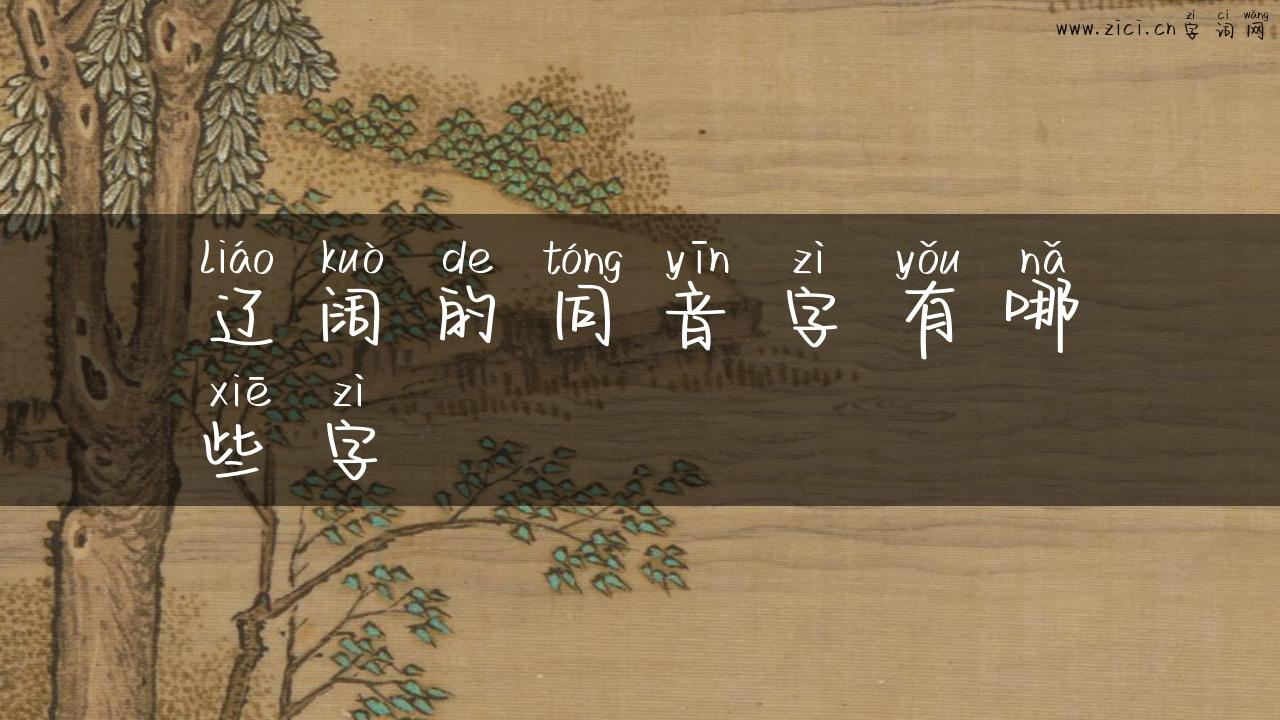 zì cí wǎng
www.zici.cn 字词网
liáo kuò de tóng yīn zì yǒu nǎ
辽阔的同音字有哪
xiē zì
些字